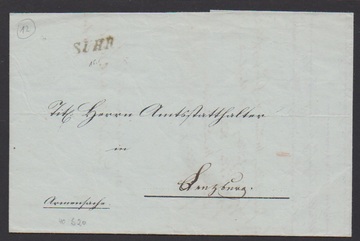 12
SUHR
Tit. Herrn Amtsstatthalter
in
Lenzburg.
Armensache